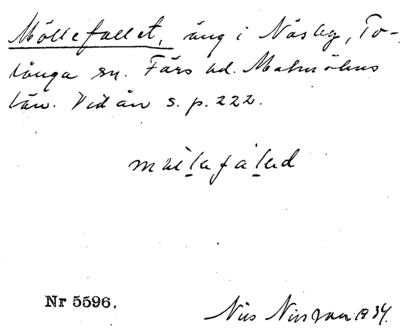 Möllefallet, äng i Näsby, To-
långa sn. Färs hd. Malmöhus
län. Vid ån s. p. 222.
Nr 5596.
Nils Nilsson 1934.